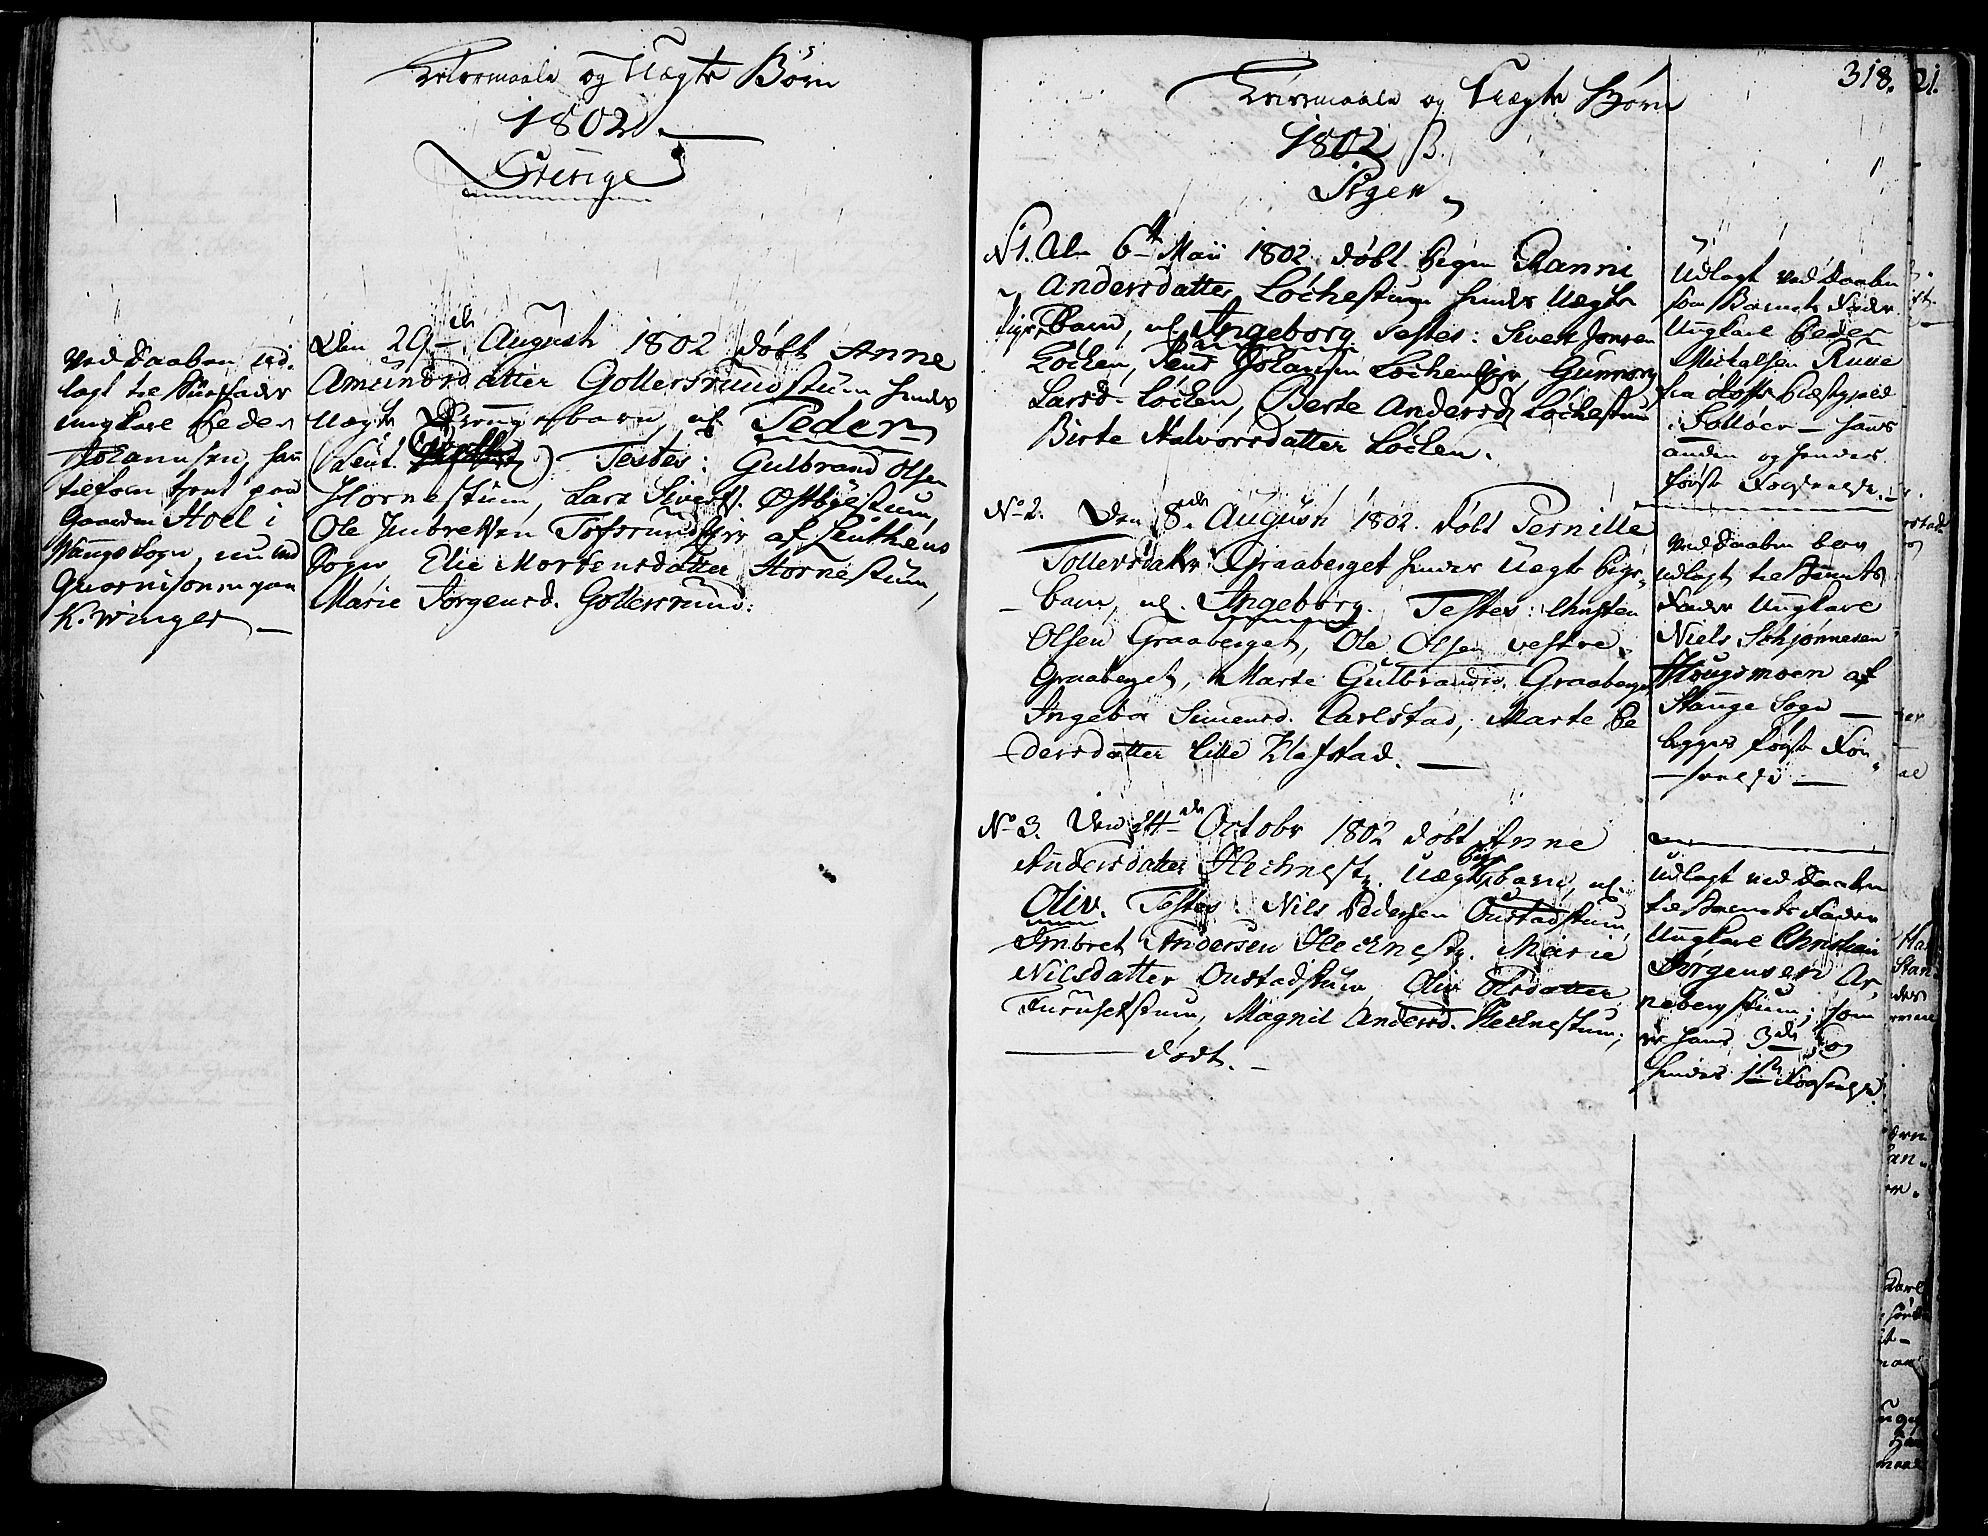 Leiermaale og Uægte Børn
1802.
Drenge
Ved Daaben ud,
lagt til Barnefader
ungkarl Peder
Johannesen, han
tilforn tient paa
Gaarden Hoel i
Wangs Sogn, nu ved
Guarnisonen paa
K. Winger
Den 29de August 1802 døbt Anne
Amundsdatter Gollersrudstuen hendes
uægte Drengebarn, nl. Peder
(Leut. ) Testes: Gulbrand Olsen
Hornestuen, Lars Sivers. Østbyestuen,
Ole Imbretsen Tofsrudeier af Leuthens
Sogn Elie Mortensdatter Hornestuen,
Marie Jørgensd. Gollersrud.
318.
Leiermaale og Uægte Børn
1802 B.
Piger
N 1. Den 6te Maii 1802 døbt Pigen Ranni
Andersdatter Løchestuen hendes Uægte
Pige Barn, nl. Ingeborg Testes: Sivert Jonsen
Løchen, Jens Johansen Løcheneier, Gunnor
Larsd. Løchen, Berte Andersd. Løchestuen
Birte Halvorsdatter Løchen.
Udlagt ved Daaben
som Barnets Fader
Ungkarl Peder
Michelsen Ruue
fra Præstegield
i Solløer hans
anden og hendes
første Forseelse.
No 2. Den 8de August 1802. døbt Pernille
Tollevsdatter Graaberget hendes Uægte Pige-
barn, nl. Ingeborg. Testes: Christen
Olsen Graaberget, Ole Olsen vestre
Graaberget, Marte Gulbrandsd. Graaberget
Ingebor Simensd. Carlstad, Marte Pe
dersdatter Lille Klafstad.
Ved Daaben blev
udlagt til Barnets
Fader Ungkarl
Niels Schjønnesen
Hougsmoen af
Stange Sogn
begges første For-
seelse
No 3. Den 24de Octobr 1802 døbt Anne
Andersdatter Hechnest. Uægte Pige barn, nl.
Oliv. Testes: Nils Pedersen Oustadstuen,
Imbret Andersen Hechnest. Marie
Nilsdatter Oustadstuen, Oliv Olsdatter
Furusetstuen, Magnil Andersd. Hechnestuen,
dødt.
Udlagt ved Daaben
til Barnets Fader
Ungkarl Christian
Jørgensen Ar-
nebergstuen, som
er hans 3de og
hendes 1te Forseelse.